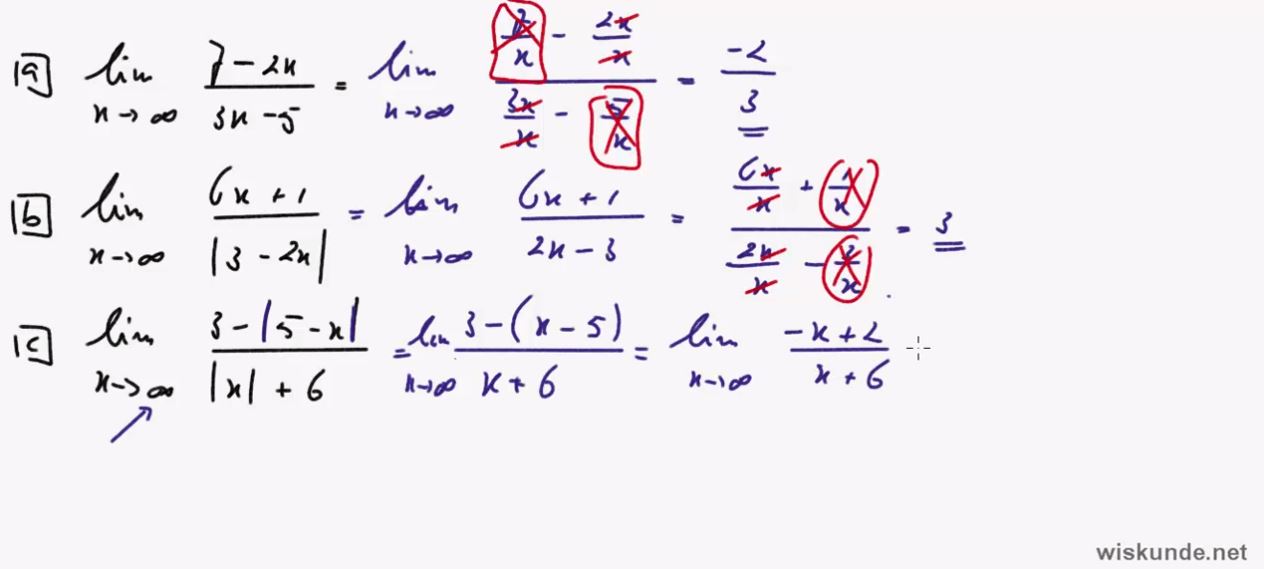 1a lim x→∞ (7 − 2x)/(3x − 5) = lim x→∞ (7/x − 2x/x)/(3x/x − 5/x) = −2/3
1b lim x→∞ (6x + 1)/|3 − 2x| = lim x→∞ (6x + 1)/(2x − 3) = (6x/x + 1/x)/(2x/x − 3/x) = 3
1c lim x→∞ (3 − |5 − x|)/(|x| + 6) = lim x→∞ (3 − (x − 5))/(x + 6) = lim x→∞ (−x + 2)/(x + 6)
wiskunde.net